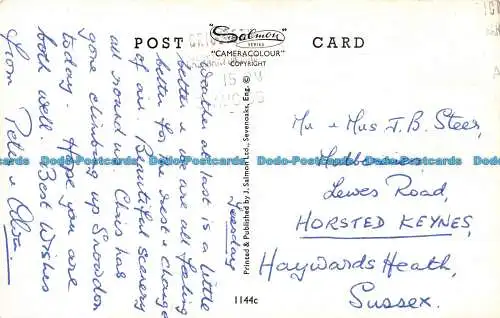 POST CARD
"Salmon"
SERIES
"CAMERACOLOUR"
COPYRIGHT
15
Tuesday
Weather at last is a little
better & we are all feeling
better for the rest & change
of air. Beautiful scenery
all round us. Chris has
gone climbing up Snowdon
today. Hope you are
both well. Best Wishes
from Peter &
Printed & Published by J. Salmon Ltd., Sevenoaks, Eng.
1144c
Mr & Mrs J.B. Steer,
Lewes Road,
HORSTED KEYNES,
Haywards Heath,
Sussex.
Dodo-Postcards.com Dodo-Postcards.com Dodo-Postcards.com Dodo-Postcards.com